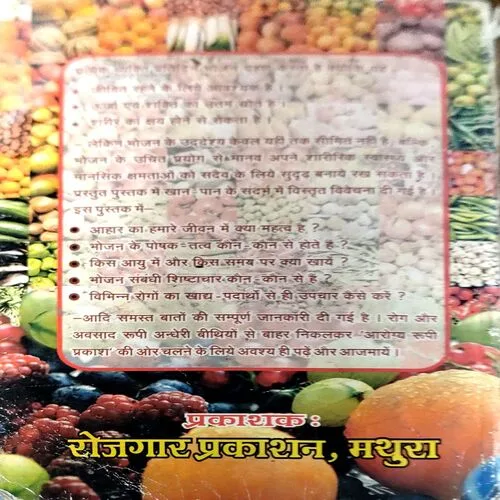 जीवित रहने के लिये आवश्यक है ।
ऊर्जा एवं शक्ति का उत्तम स्रोत है ।
शरीर का क्षय होने से रोकता है ।
लेकिन भोजन के उद्देश्य केवल यहीं तक सीमित नहीं है। बल्कि
भोजन के उचित प्रयोग से मानव अपने शारीरिक स्वास्थ्य और
मानसिक क्षमताओं को सदैव के लिये सुदृढ़ बनाये रख सकता है ।
प्रस्तुत पुस्तक में खान-पान के संदर्भ में विस्तृत विवेचना दी गई है ।
इस पुस्तक में—
● आहार का हमारे जीवन में क्या महत्व है ?
● भोजन के पोषक-तत्व कौन-कौन से होते है ?
● किस आयु में और किस समय पर क्या खायें ?
● भोजन संबंधी शिष्टाचार-कौन-कौन से है ?
● विभिन्न रोगों का खाद्य-पदार्थो से ही उपचार कैसे करे ?
—आदि समस्त बातों की सम्पूर्ण जानकारी दी गई है । रोग और
अवसाद रूपी अन्धेरी बीथियों से बाहर निकलकर 'आरोग्य रूपी
प्रकाश' की ओर चलने के लिये अवश्य ही पढ़ें और आजमायें ।
प्रकाशक :
रोजगार प्रकाशन, मथुरा